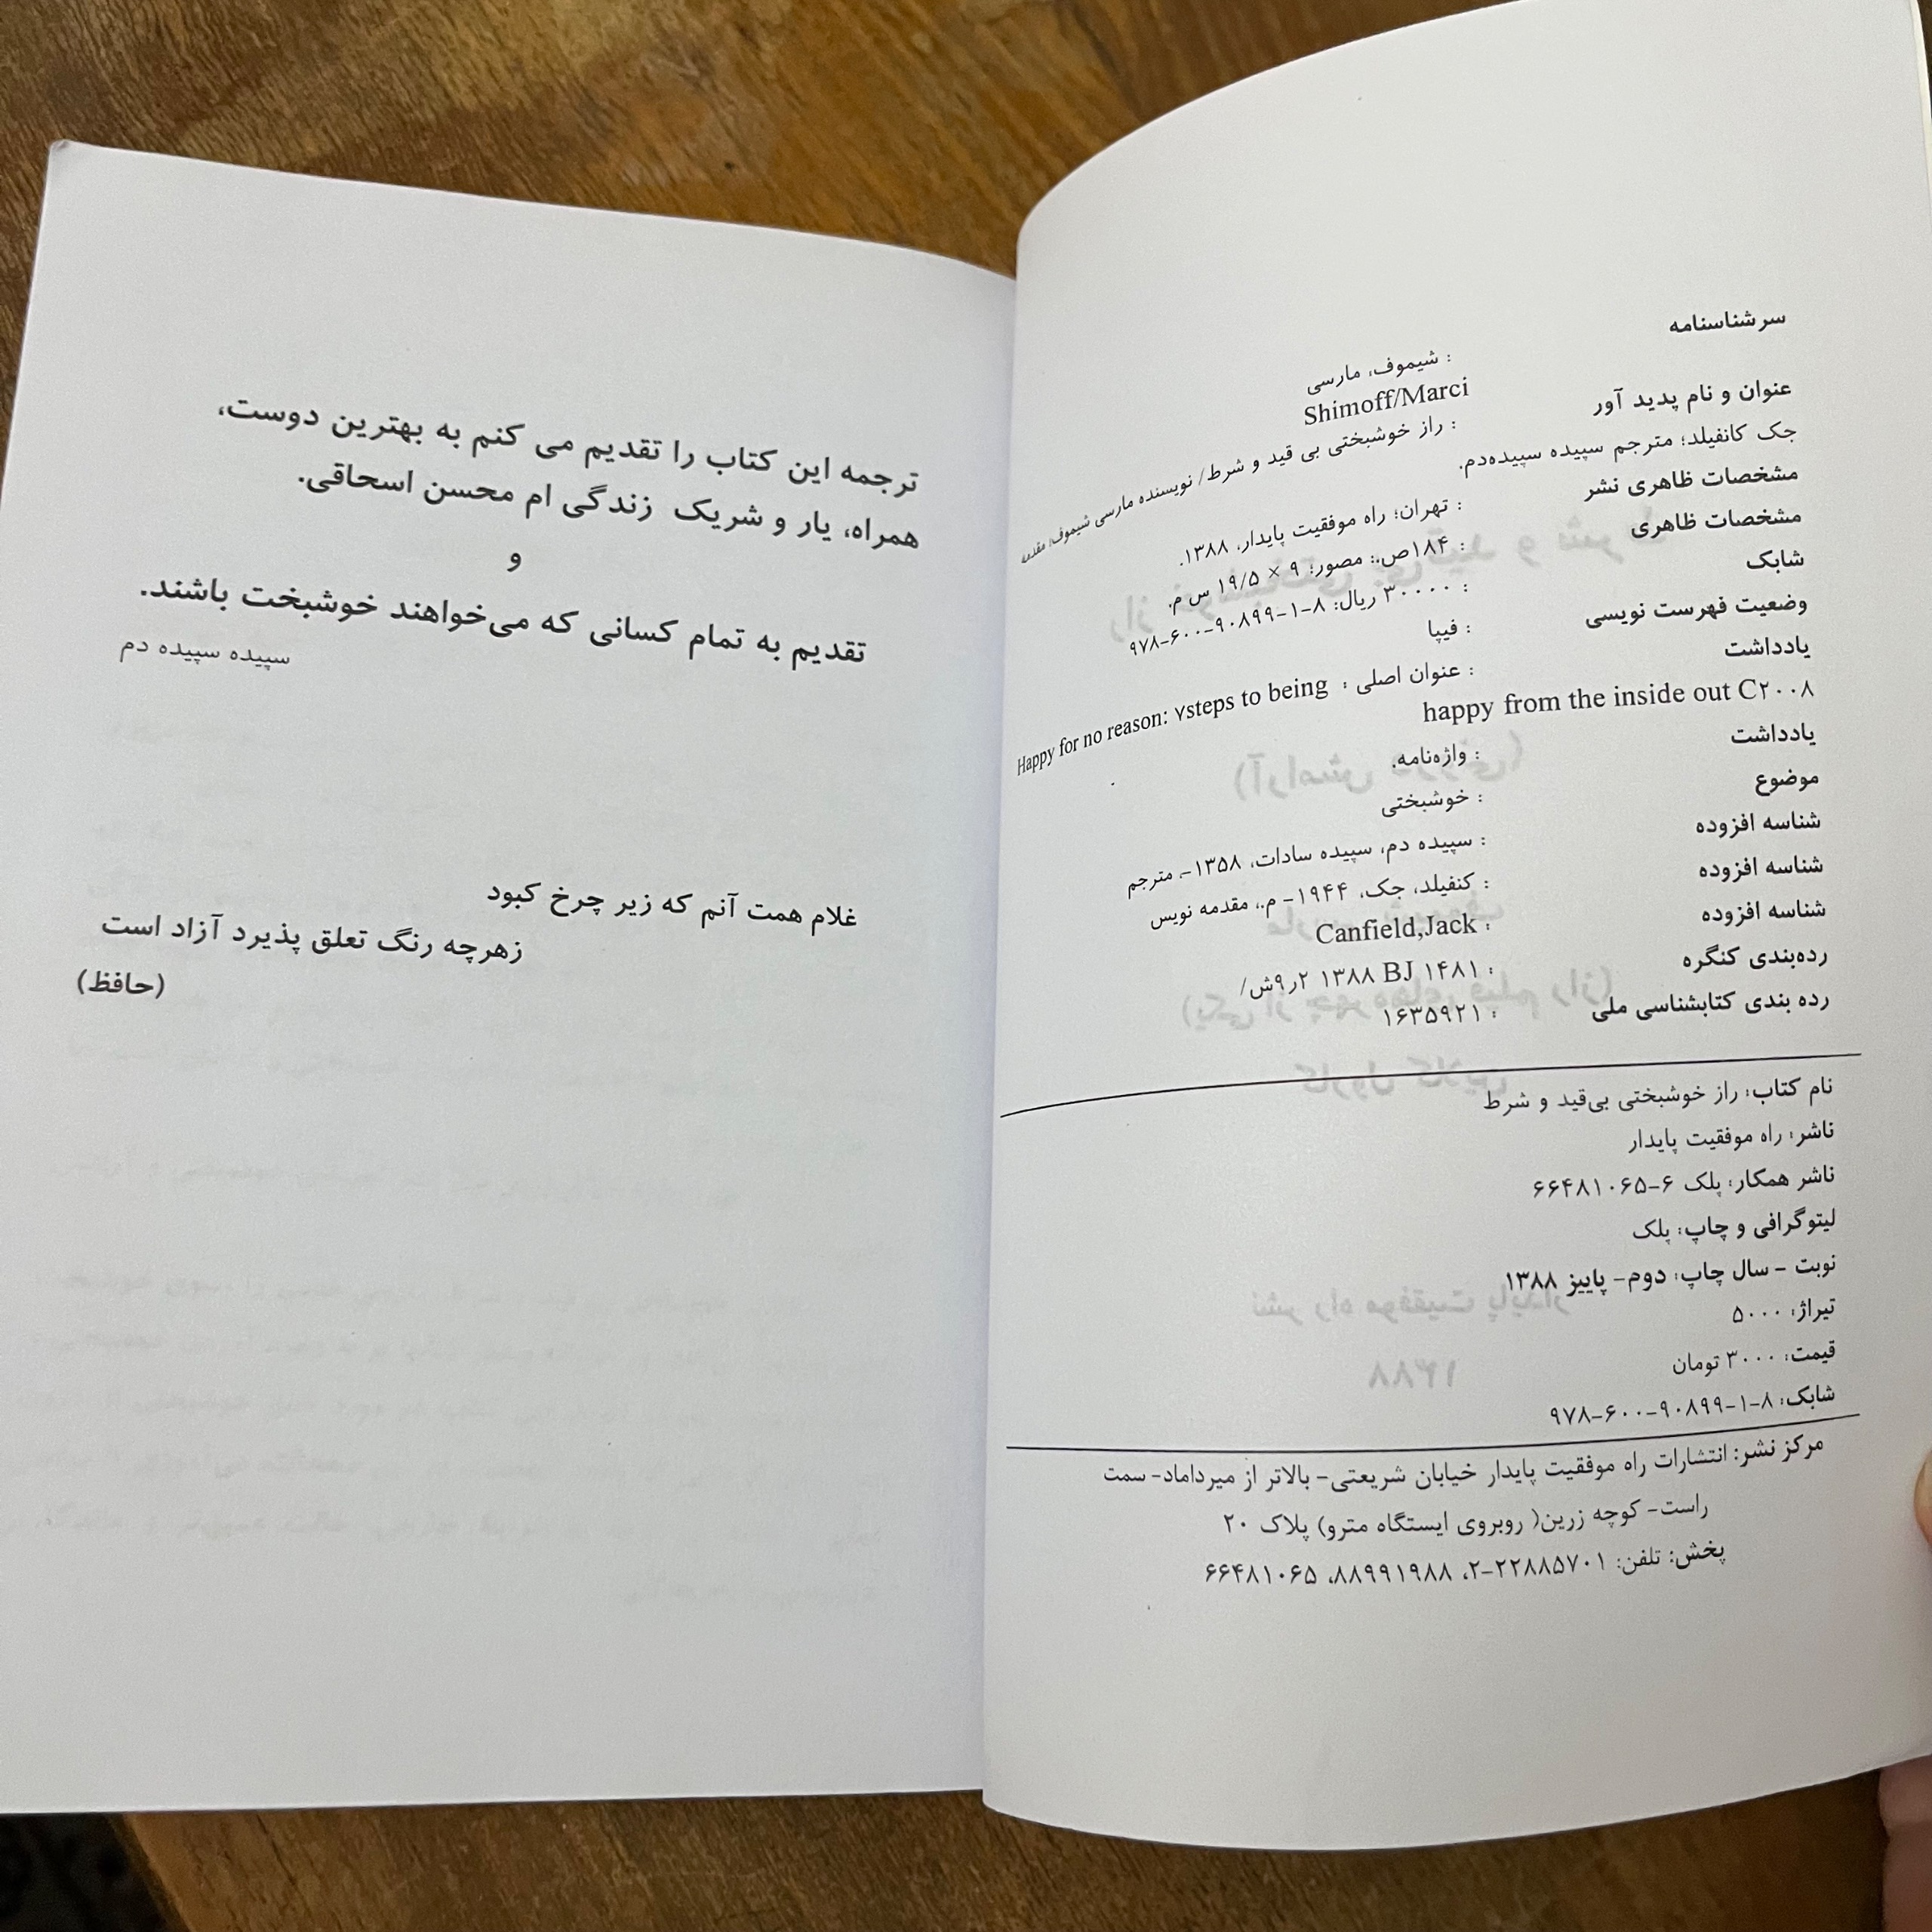 سرشناسنامه
: شیموف، مارسی
Shimoff/Marci
عنوان و نام پدید آور : راز خوشبختی بی قید و شرط/ نویسنده مارسی شیموف؛ مقدمه
جک کانفیلد؛ مترجم سپیده سپیده‌دم.
مشخصات ظاهری نشر : تهران؛ راه موفقیت پایدار، ۱۳۸۸.
مشخصات ظاهری : ۱۸۴ص.: مصور؛ ۹ × ۱۹/۵ س م.
شابک : ۳۰۰۰۰ ریال: ۸-۱-۹۰۸۹۹-۶۰۰-۹۷۸
وضعیت فهرست نویسی : فیپا
یادداشت : عنوان اصلی : Happy for no reason: ۷steps to being
happy from the inside out C۲۰۰۸
یادداشت : واژه‌نامه.
موضوع : خوشبختی
شناسه افزوده : سپیده دم، سپیده سادات، ۱۳۵۸-، مترجم
شناسه افزوده : کنفیلد، جک، ۱۹۴۴- م.، مقدمه نویس
شناسه افزوده : Canfield,Jack
رده‌بندی کنگره : ۱۴۸۱ BJ ۱۳۸۸ ۲ر۹ش/
رده بندی کتابشناسی ملی : ۱۶۳۵۹۲۱
نام کتاب: راز خوشبختی بی‌قید و شرط
ناشر: راه موفقیت پایدار
ناشر همکار: پلک ۶-۶۶۴۸۱۰۶۵
لیتوگرافی و چاپ: پلک
نوبت - سال چاپ: دوم- پاییز ۱۳۸۸
تیراژ: ۵۰۰۰
قیمت: ۳۰۰۰ تومان
شابک: ۸-۱-۹۰۸۹۹-۶۰۰-۹۷۸
مرکز نشر: انتشارات راه موفقیت پایدار خیابان شریعتی- بالاتر از میرداماد- سمت
راست- کوچه زرین( روبروی ایستگاه مترو) پلاک ۲۰
پخش: تلفن: ۲۲۸۸۵۷۰۱-۲، ۸۸۹۹۱۹۸۸، ۶۶۴۸۱۰۶۵
ترجمه این کتاب را تقدیم می کنم به بهترین دوست،
همراه، یار و شریک زندگی ام محسن اسحاقی.
و
تقدیم به تمام کسانی که می‌خواهند خوشبخت باشند.
سپیده سپیده دم
غلام همت آنم که زیر چرخ کبود
زهرچه رنگ تعلق پذیرد آزاد است
(حافظ)